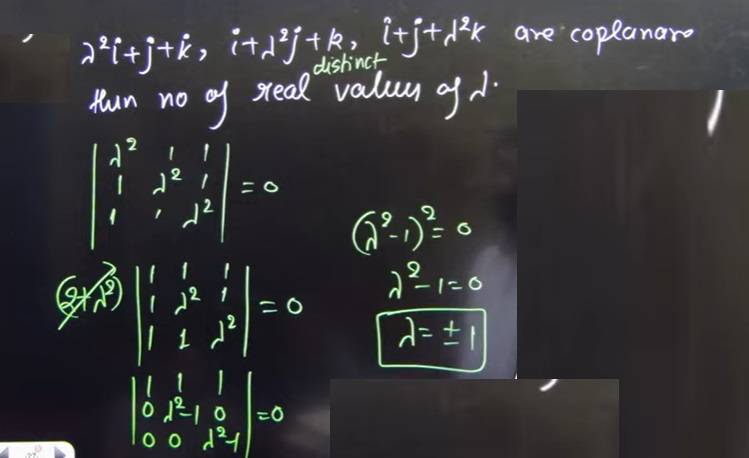 λ²i+j+k, i+λ²j+k, i+j+λ²k are coplanar
distinct
then no of real values of λ.
| λ² 1 1 |
| 1 λ² 1 | = 0
| 1 1 λ² |
(2+λ²) | 1 1 1 |
| 1 λ² 1 | = 0
| 1 1 λ² |
| 1 1 1 |
| 0 λ²-1 0 | = 0
| 0 0 λ²-1 |
(λ²-1)² = 0
λ²-1=0
λ= ±1